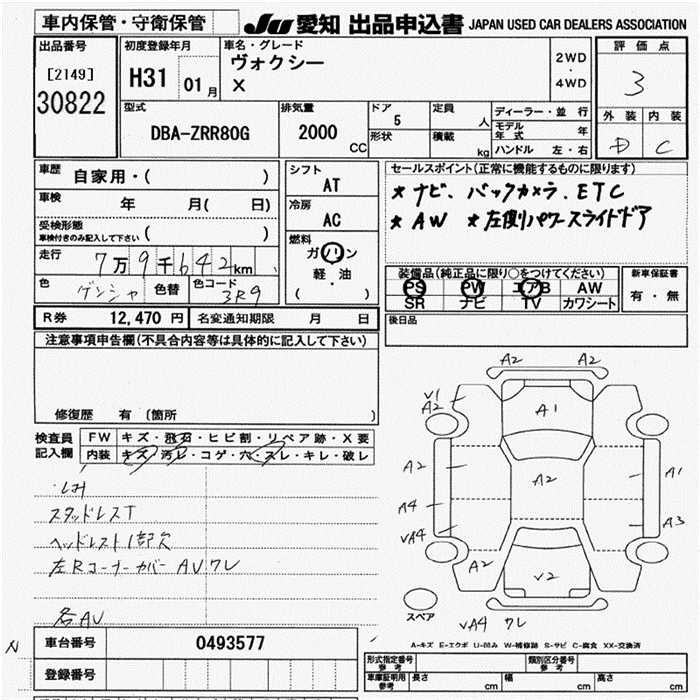 車内保管・守衛保管
JU 愛知 出品申込書 JAPAN USED CAR DEALERS ASSOCIATION
出品番号
[2149]
30822
初度登録年月
H31 01 月
車名・グレード
ヴォクシー
X
2WD
・
4WD
評価点
3
外装 内装
D C
型式
DBA-ZRR80G
排気量
2000
CC
ドア
5
形状
定員
人
積載
kg
ディーラー・並行
モデル年式 年
ハンドル 左・右
車歴 自家用・( )
車検 年 月( 日)
受検形態
車検付きのみ記入して下さい ( )
走行 7万9千642km
色 ゲンシャ 色替 色コード 3R9
シフト
AT
冷房
AC
燃料
ガソリン
軽・油
( )
セールスポイント(正常に機能するものに限ります)
* ナビ、バックカメラ、ETC
* AW * 左側パワースライドドア
装備品(純正品に限り○をつけてください)
PS PW エアB AW
SR ナビ TV カワシート
新車保証書
有・無
後日品
R券 12,470 円 名変通知期限 月 日
注意事項申告欄(不具合内容等は具体的に記入して下さい)
修復歴 有 (箇所 )
検査員記入欄
FW キズ・飛石・ヒビ割・リペア跡・X要
内装 キズ・汚レ・コゲ・穴・スレ・キレ・破レ
スタッドレスT
ヘッドレスト1部欠
左Rコーナーカバー AVワレ
各AV
A2 A2
V1
A2
A1
A2
A2
A1
A4
A3
VA4
A2
V2
スペア
VA4 ワレ
A-キズ E-エクボ U-凹み W-補修跡 S-サビ C-腐食 XX-交換済
N
車台番号 0493577
登録番号
形式指定番号 参考
類別区分番号 参考
車庫証明用 参考
長さ cm 幅 cm 高さ cm